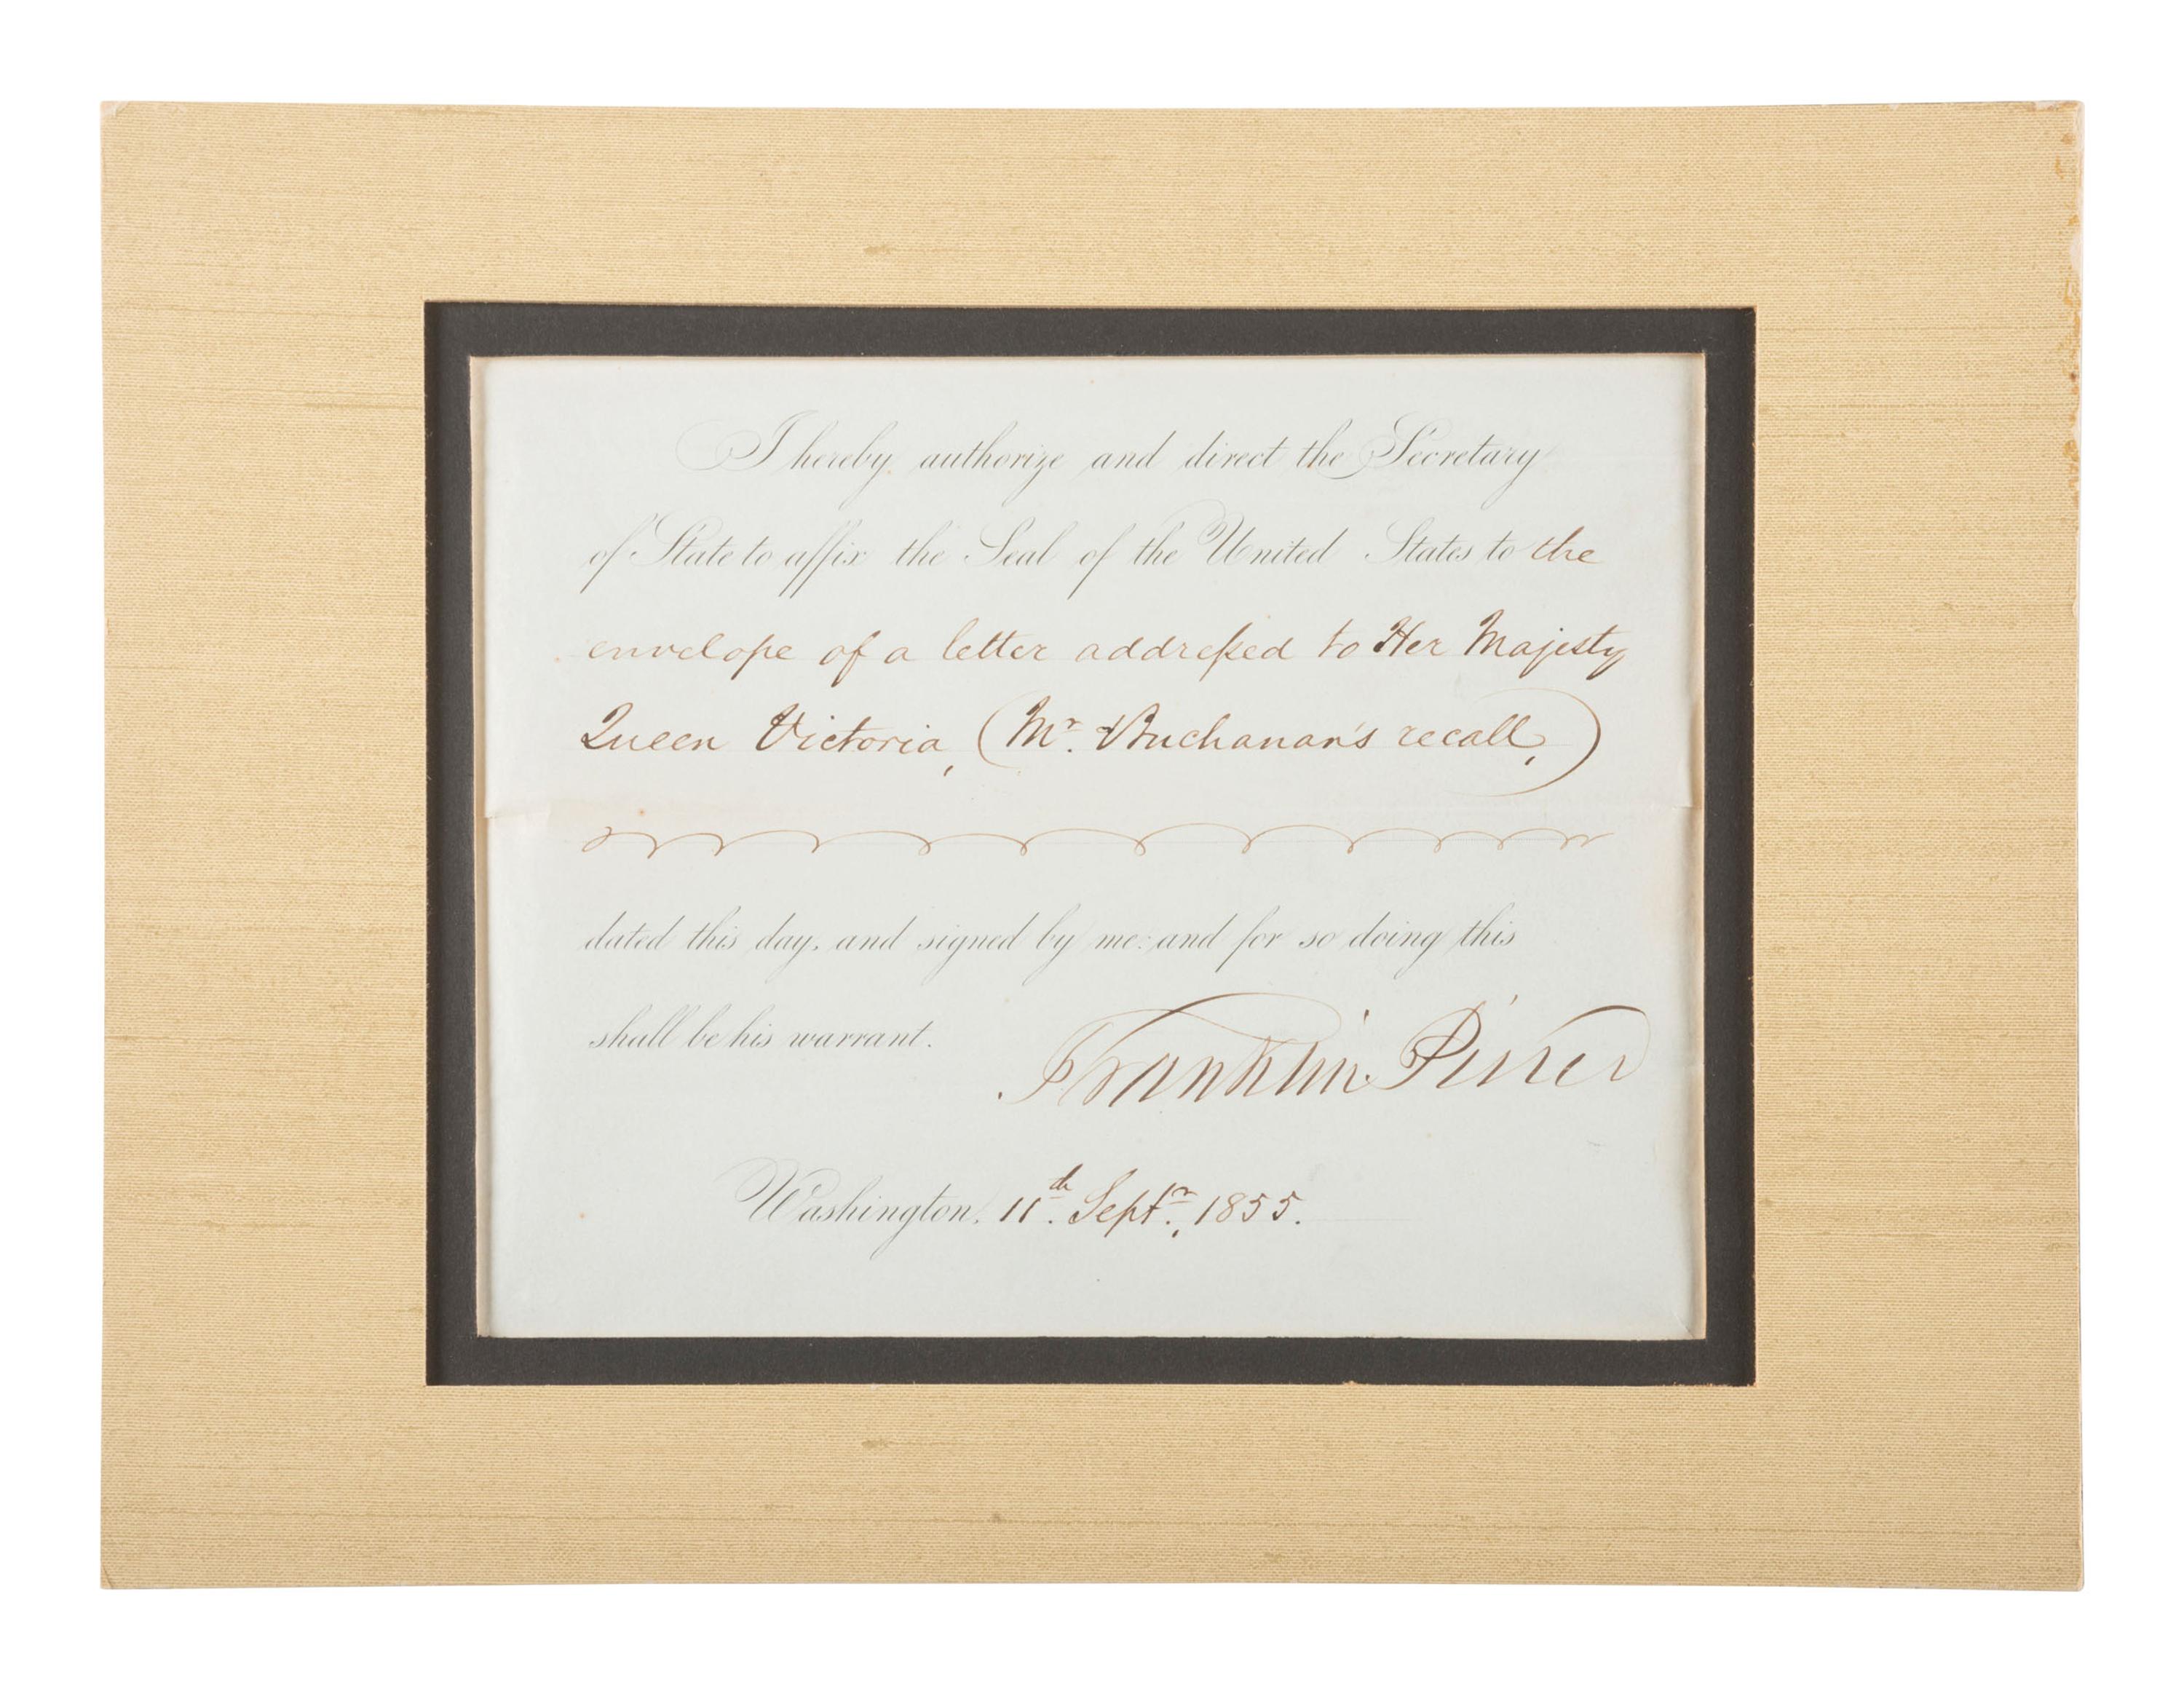 I hereby authorize and direct the Secretary
of State to affix the Seal of the United States to the
envelope of a letter addreſsed to Her Majesty
Queen Victoria, (Mr. Buchanan's recall,)
dated this day, and signed by me: and for so doing this
shall be his warrant.
Franklin Pierce
Washington, 11th. Septr., 1855.